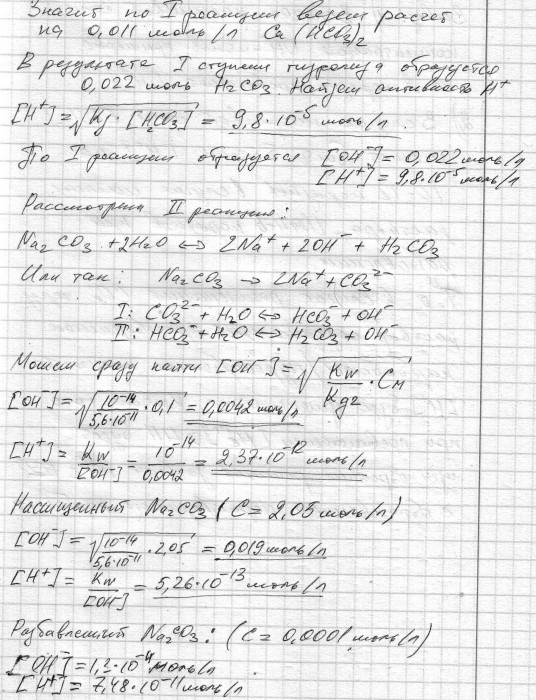 Значит по I реакции ведем расчет
на 0,011 моль/л Ca(HCO₃)₂
В результате I ступени гидролиза образуется
0,022 моль H₂CO₃. Найдем активность H⁺
[H⁺] = √(Kд · [H₂CO₃]) = 9,8·10⁻⁵ моль/л.
По I реакции образуется [OH⁻] = 0,022 моль/л
[H⁺] = 9,8·10⁻⁵ моль/л
Рассмотрим II реакцию:
Na₂CO₃ + 2H₂O ⇔ 2Na⁺ + 2OH⁻ + H₂CO₃
Или так: Na₂CO₃ → 2Na⁺ + CO₃²⁻
I: CO₃²⁻ + H₂O ⇔ HCO₃⁻ + OH⁻
II: HCO₃⁻ + H₂O ⇔ H₂CO₃ + OH⁻
Можем сразу найти [OH⁻] = √(Kw/Kд2 · Cм)
[OH⁻] = √(10⁻¹⁴/5,6·10⁻¹¹ · 0,1) = 0,0042 моль/л
[H⁺] = Kw/[OH⁻] = 10⁻¹⁴/0,0042 = 2,37·10⁻¹² моль/л
Насыщенный Na₂CO₃ (C = 2,05 моль/л)
[OH⁻] = √(10⁻¹⁴/5,6·10⁻¹¹ · 2,05) = 0,019 моль/л
[H⁺] = Kw/[OH⁻] = 5,26·10⁻¹³ моль/л
Разбавленный Na₂CO₃: (C = 0,0001 моль/л)
[OH⁻] = 1,3·10⁻⁴ моль/л
[H⁺] = 7,48·10⁻¹¹ моль/л